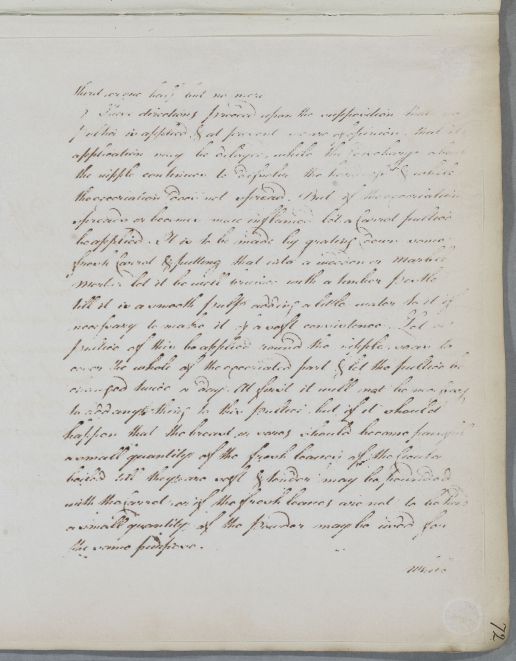 about or one half but no more
These directions proceed upon the supposition that no
poultice is applied & at present we are of opinion, that its
application may be delayed, while the discharge about
the nipple continues to & while
the excoriation does not spread. But if the excoriation
spreads or becomes more inflamed let a Carrot poultice
be applied. It is to be made by grating down some
fresh Carrot & putting that into a wooden or marble
mortar let it be well bruised with a timber pestle
till it is a smooth pulp adding a little water to it if
necessary to make it of a soft consistence. Let a
poultice of this be applied round the nipple so as to
cover the whole of the excoriated part & let the poultice be
changed twice a day. At first it will not be necessary
to add any thing to this poultice but if it should
happen that the breast or sores should become painful
a small quantity of the fresh leaves of the Cicuta
boiled till they are soft & tender may be pounded
with the Carrot, or if the fresh leaves are not to be had
a small quantity of the Powder may be used for
the same purpose.
72